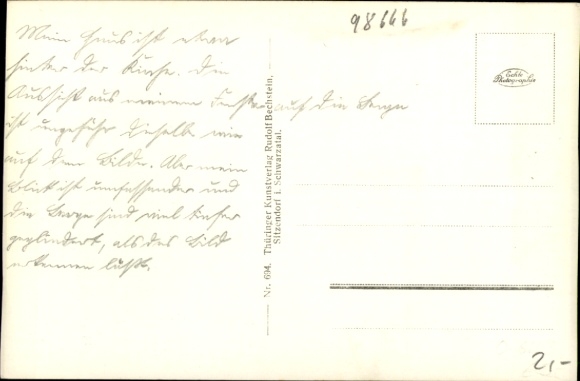 98666
Mein Haus ist etwa
hinter der Kirche. Die
Aussicht aus meinem Fenster auf die Berge
ist ungefähr dieselbe wie
auf dem Bilde. Aber mein
Blick ist umfassender und
die Berge sind viel tiefer
gegliedert, als das Bild
erkennen läßt.
Nr. 694. Thüringer Kunstverlag Rudolf Bechstein,
Sitzendorf i. Schwarzatal.
Echte
Photographie
2,-